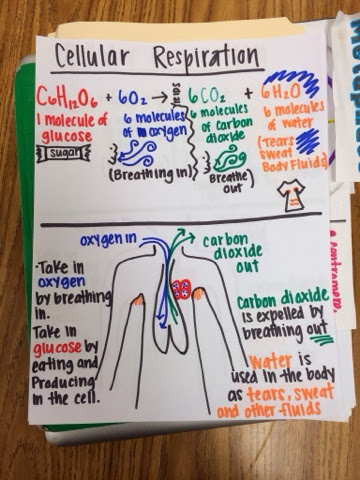 Cellular Respiration
C6H12O6 + 6O2 → 6CO2 + 6H2O
1 molecule of glucose
sugar
6 molecules of oxygen
(Breathing in)
6 molecules of carbon dioxide
(Breathe out)
6 molecules of water
(Tears
sweat
Body Fluids)
oxygen in
carbon dioxide out
·Take in
oxygen
by breathing
in.
Take in
glucose by
eating and
Producing
in the cell.
Carbon dioxide
is expelled by
breathing out
Water is
used in the body
as tears, sweat
and other fluids